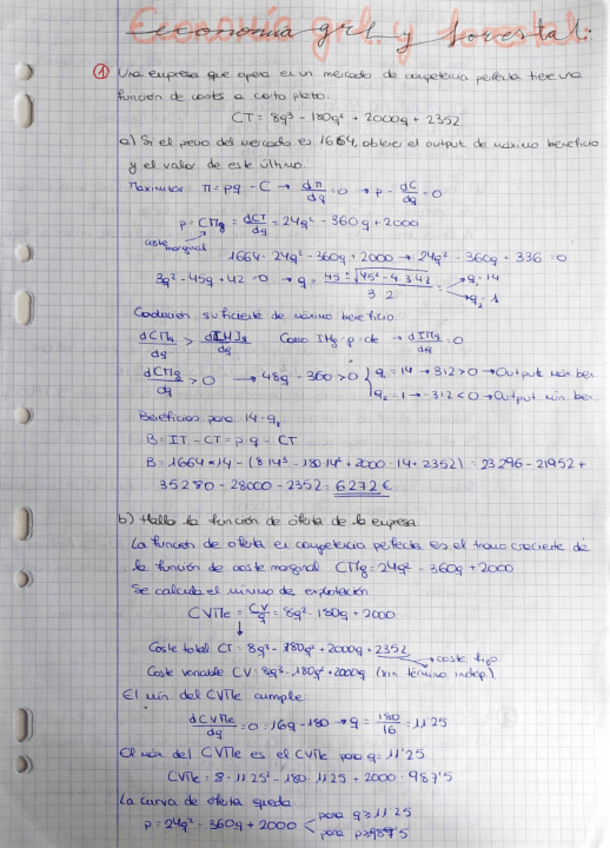 Economía grl. y forestal:
① Una empresa que opera en un mercado de competencia perfecta tiene una
función de costes a corto plazo:
CT = 8q³ - 180q² + 2000q + 2352
a) Si el precio del mercado es 1664, obtener el output de máximo beneficio
y el valor de este último.
Maximizar π = pq - C → dπ/dq = 0 → p - dC/dq = 0
p = CMg = dCT/dq = 24q² - 360q + 2000
coste marginal
1664 = 24q² - 360q + 2000 → 24q² - 360q + 336 = 0
3q² - 45q + 42 = 0 → q = (45 ± √(45² - 4·3·42))/(3·2) = → q₁ = 14 → q₂ = 1
Condición suficiente de máximo beneficio
dCMg/dq > dIMg/dq Como IMg = p = cte → dIMg/dq = 0
dCMg/dq > 0 → 48q - 360 > 0 { q₁ = 14 → 312 > 0 → Output máx ben.
q₂ = 1 → -312 < 0 → Output mín ben.
Beneficios para 14 = q₁
B = IT - CT = p·q - CT
B = 1664 * 14 - (8·14³ - 180·14² + 2000·14 + 2352) = 23296 - 21952 +
35280 - 28000 - 2352 = 6272 €
b) Halla la función de oferta de la empresa
La función de oferta en competencia perfecta es el tramo creciente de
la función de coste marginal CMg = 24q² - 360q + 2000
Se calcula el mínimo de explotación
CVMe = CV/q = 8q² - 180q + 2000
↓
Coste total CT = 8q³ - 180q² + 2000q + 2352 → coste fijo
Coste variable CV = 8q³ - 180q² + 2000q (sin término indep.)
El mín. del CVMe cumple:
dCVMe/dq = 0 = 16q - 180 → q = 180/16 = 11'25
El mín del CVMe es el CVMe para q = 11'25
CVMe = 8·11'25² - 180·11'25 + 2000 = 987'5
La curva de oferta queda
p = 24q² - 360q + 2000 < para q ≥ 11'25
para p ≥ 987'5